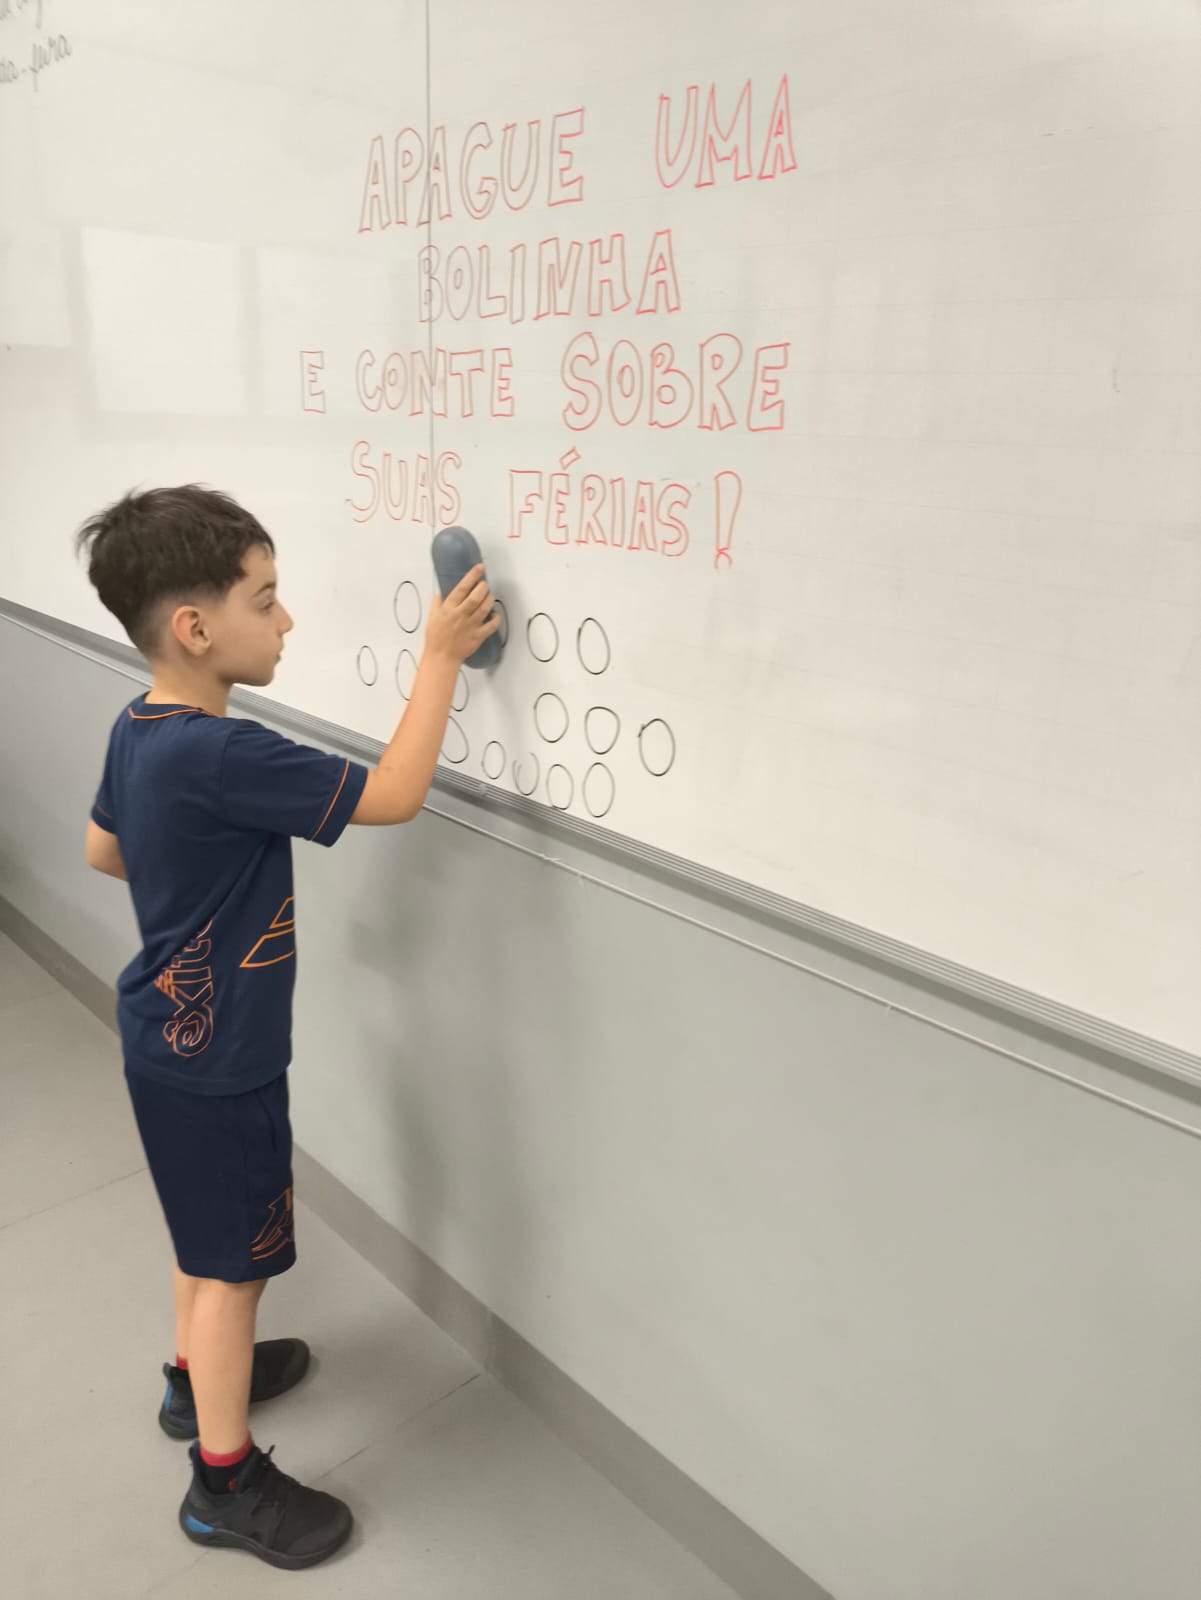 da-feira
APAGUE UMA
BOLINHA
E CONTE SOBRE
SUAS FÉRIAS!
êxito